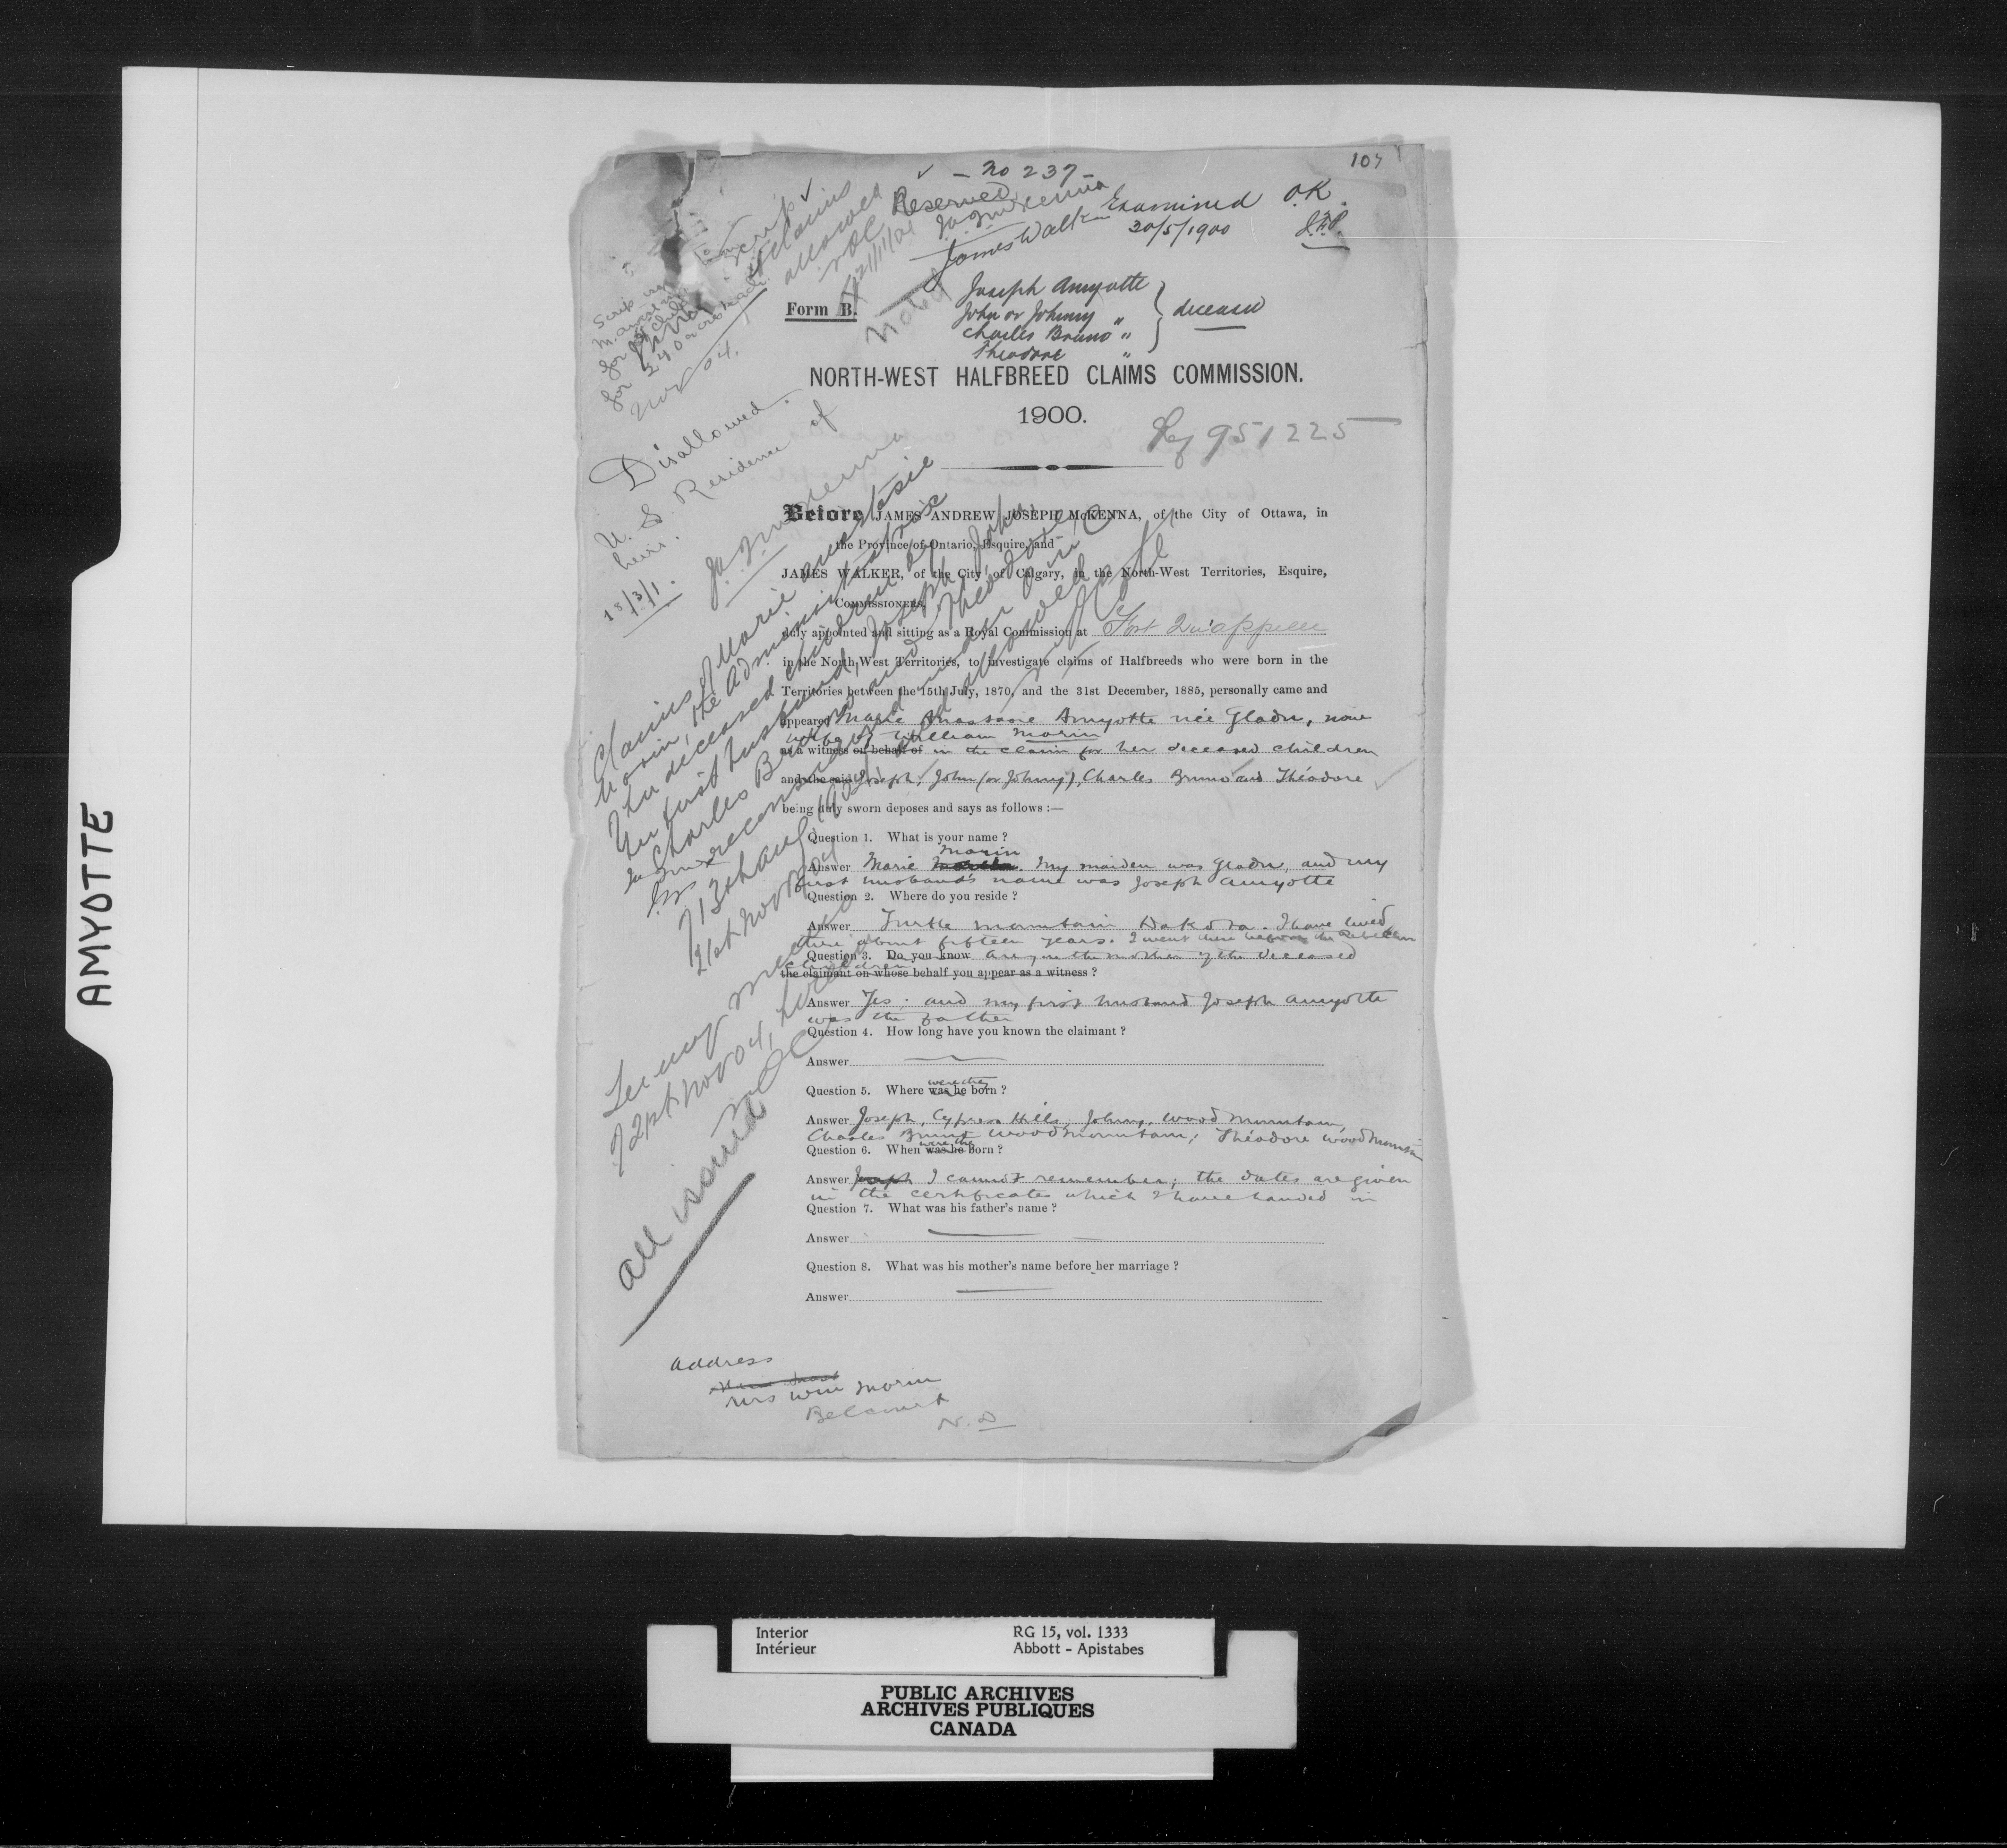 AMYOTTE
107
✓ – No 237 –
Reserved
J.A.J. McKenna
James Walker
Examined O.K.
30/5/1900 J.A.P.
Scrip
Claims
allowed
NOC
21/11/04
Noted
Nov 04.
Form B.
Joseph Amyotte
John or Johnny "
Charles Bruno "
Theodore "
deceased
NORTH-WEST HALFBREED CLAIMS COMMISSION.
1900.
951225
Disallowed.
U. S. Residence of
heirs.
J.A.J. McKenna
18/3/1.
Before JAMES ANDREW JOSEPH McKENNA, of the City of Ottawa, in
the Province of Ontario, Esquire, and
JAMES WALKER, of the City of Calgary, in the North-West Territories, Esquire,
COMMISSIONERS,
duly appointed and sitting as a Royal Commission at Fort Qu'appelle
in the North-West Territories, to investigate claims of Halfbreeds who were born in the
Territories between the 15th July, 1870, and the 31st December, 1885, personally came and
appeared Marie Anastasie Amyotte née Gladu, now
wife of William Morin
as a witness on behalf of in the claim for her deceased children
and the said Joseph, John (or Johnny), Charles Bruno and Théodore
being duly sworn deposes and says as follows :—
Claims of Marie Anastasie
Morin, the administratrix
of her deceased children by
her first husband, Joseph, John,
Charles Bruno and Theodore,
reconsidered under
and allowed
13th Aug 1904
21st Nov 04
21st Nov 04,
all issued
Question 1. What is your name ?
Morin
Answer Marie. My maiden was Gladu, and my
first husband's name was Joseph Amyotte
Question 2. Where do you reside ?
Answer Turtle Mountain Dakota. I have lived
there about fifteen years. I went there before the Rebellion
Question 3. Do you know are you the mother of the deceased
children
the claimant on whose behalf you appear as a witness ?
Answer Yes. and my first husband Joseph Amyotte
was the father
Question 4. How long have you known the claimant ?
Answer
were they
Question 5. Where was he born ?
Answer Joseph, Cypress Hills, Johnny, Wood Mountain,
Charles Bruno Wood Mountain; Théodore Wood Mountain
were they
Question 6. When was he born ?
Answer Joseph I cannot remember; the dates are given
in the certificates which I have handed in
Question 7. What was his father's name ?
Answer
Question 8. What was his mother's name before her marriage ?
Answer
address
Mrs Wm Morin
Belcourt
N.D
Interior RG 15, vol. 1333
Intérieur Abbott - Apistabes
PUBLIC ARCHIVES
ARCHIVES PUBLIQUES
CANADA